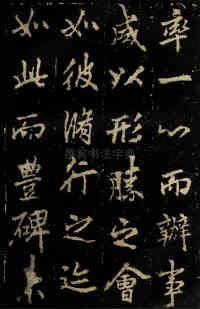 率一心而辦事
咸以形勝之會
如彼脩行之迹
如此而豐碑未
书法字典